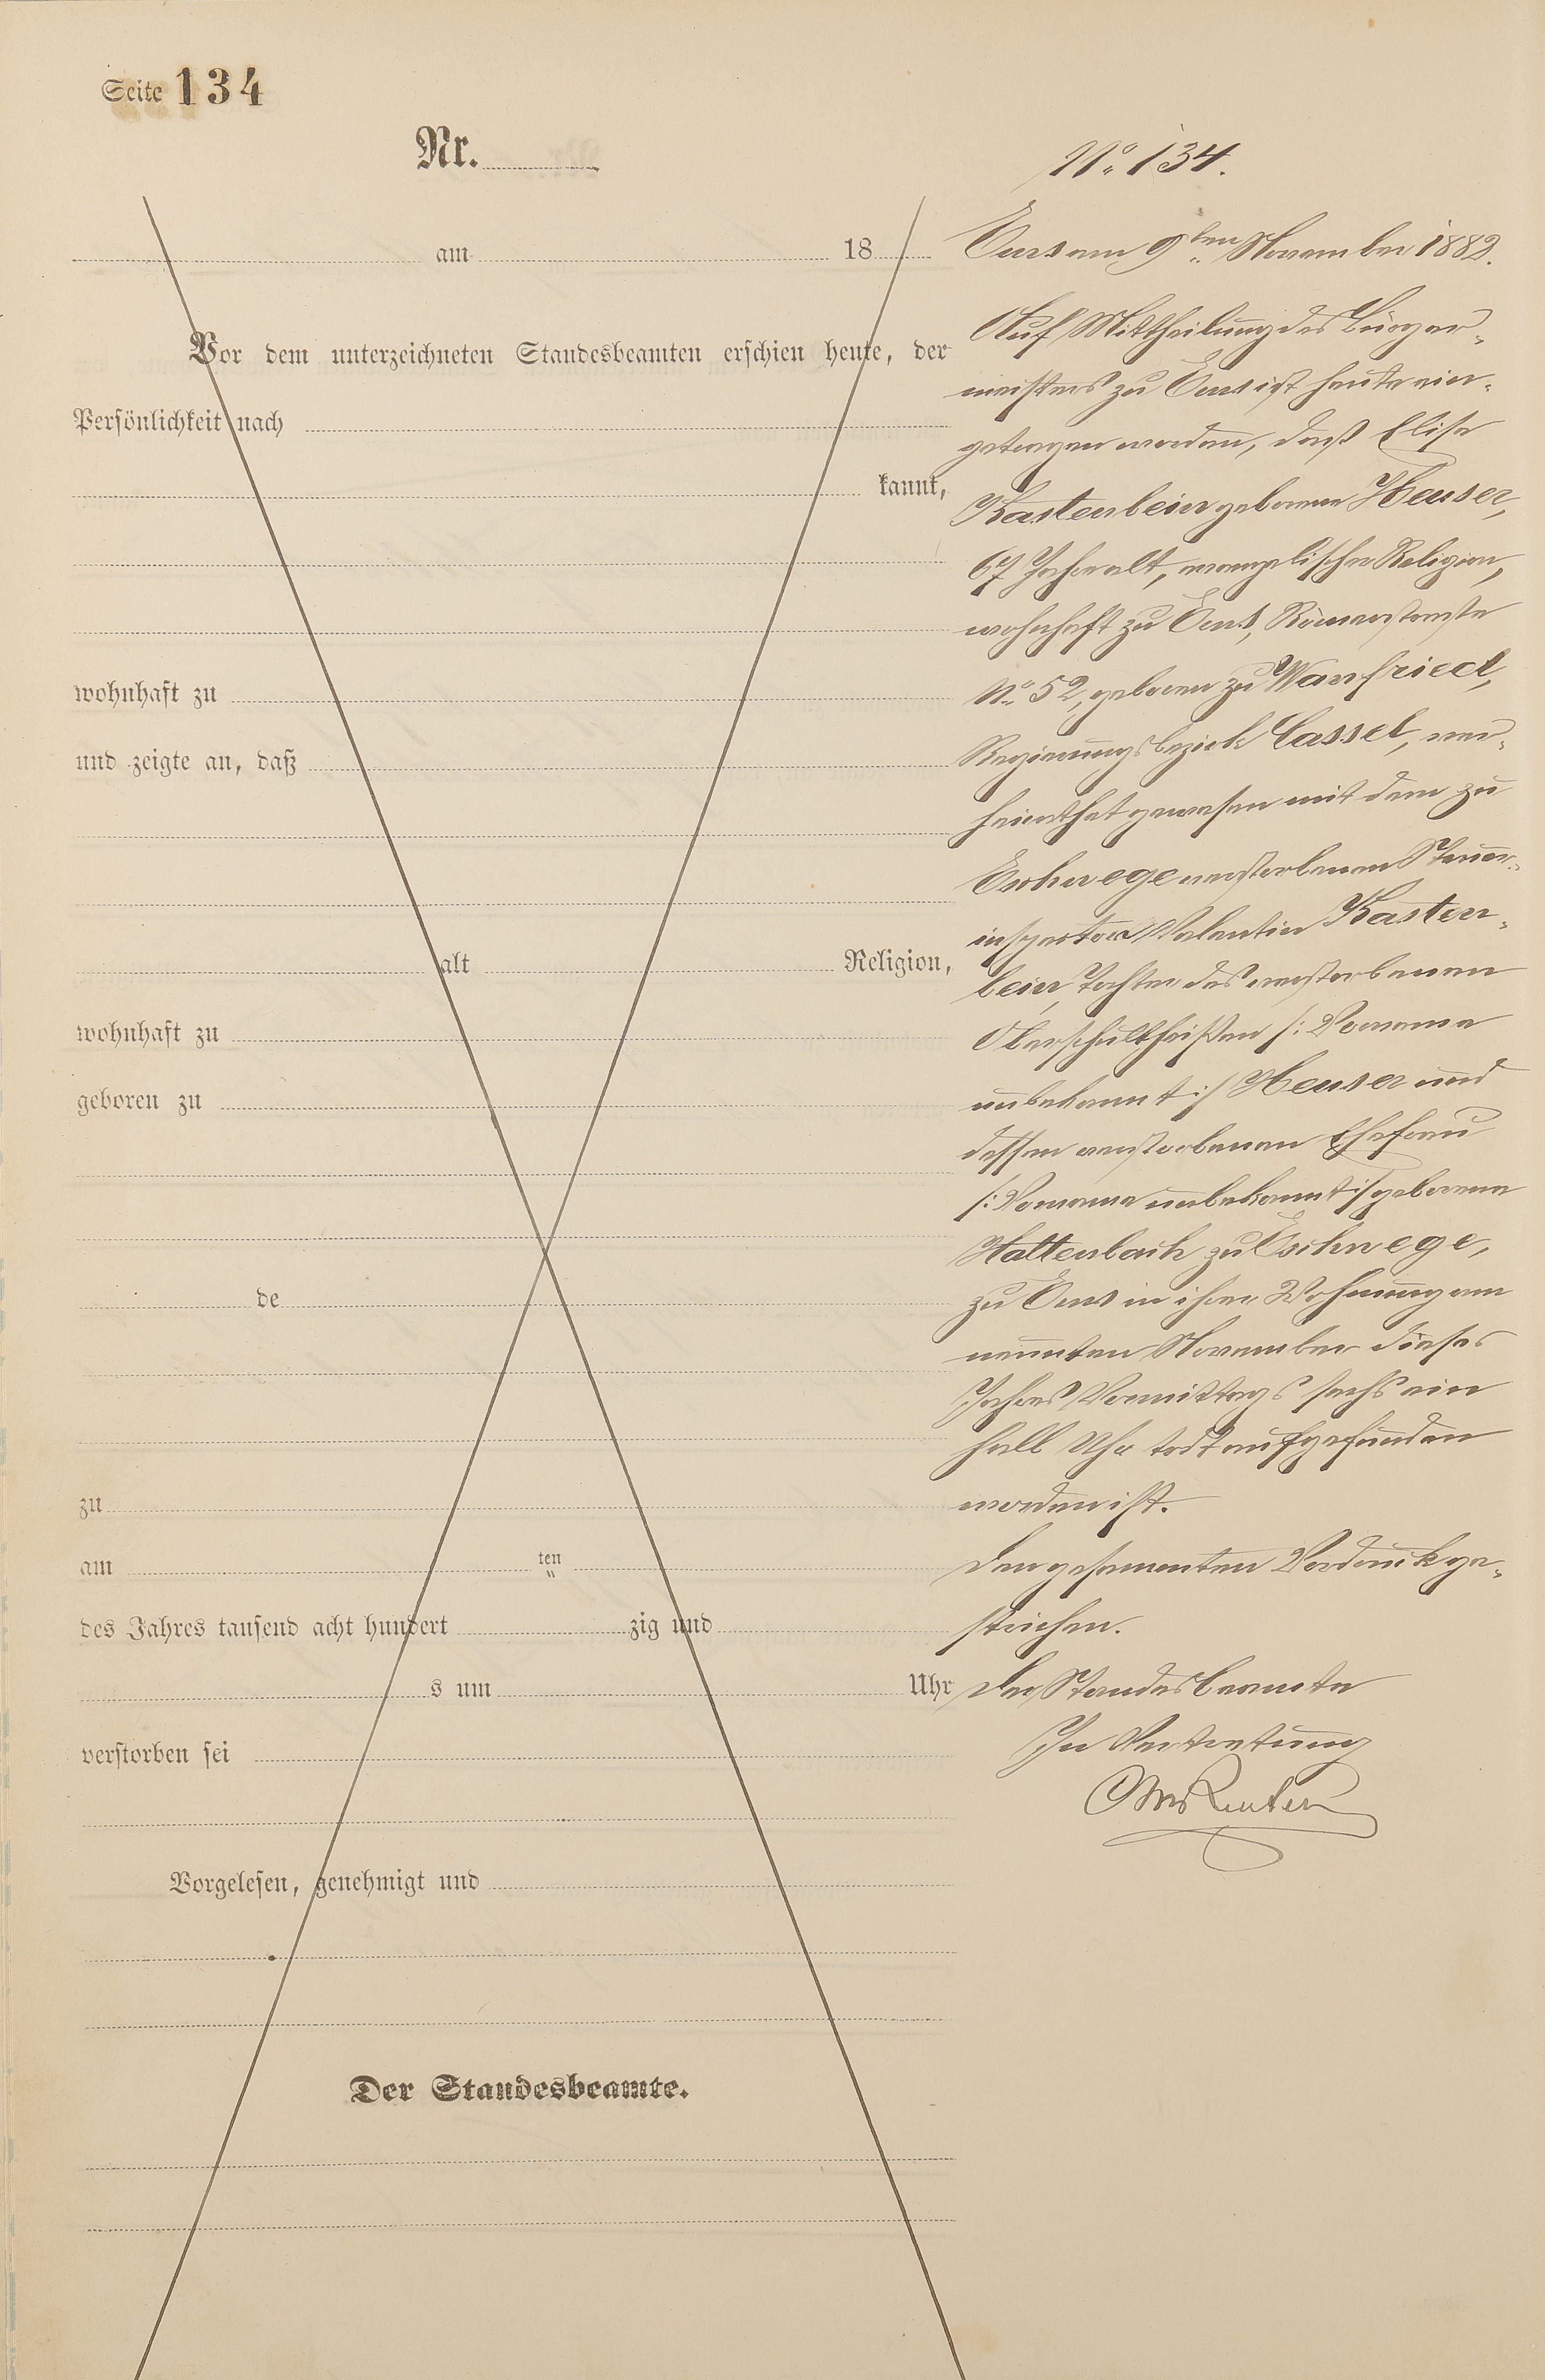 Seite 134
Nr.
am 18
Vor dem unterzeichneten Standesbeamten erschien heute, der
Persönlichkeit nach
kannt,
wohnhaft zu
und zeigte an, daß
alt Religion,
wohnhaft zu
geboren zu
de
zu
am ten
des Jahres tausend acht hundert zig und
s um Uhr
verstorben sei
Vorgelesen, genehmigt und
Der Standesbeamte.
No. 134.
Ems am 9ten November 1882.
Auf Mittheilung des Bürger-
meisters zu Ems ist heute ein-
getragen worden, daß Elise
Kastenbein geborene Heuser,
67 Jahre alt, evangelischer Religion,
wohnhaft zu Ems, Römerstraße
No. 52, geboren zu Wanfried,
Regierungsbezirk Cassel, ver-
heirathet gewesen mit dem zu
Eschwege verstorbenen Steuer-
inspector Valentin Kasten-
bein, Tochter des verstorbenen
Oberschultheißen /: Vorname
unbekannt :/ Heuser und
dessen verstorbenen Ehefrau
/: Vorname unbekannt :/ geborene
Hattenbach zu Eschwege,
zu Ems in ihrer Wohnung am
neunten November dieses
Jahres Vormittags sechs ein
halb Uhr todt aufgefunden
worden ist.
Den gesammten Vordruck ge-
strichen.
Der Standesbeamte
In Vertretung
Reuter